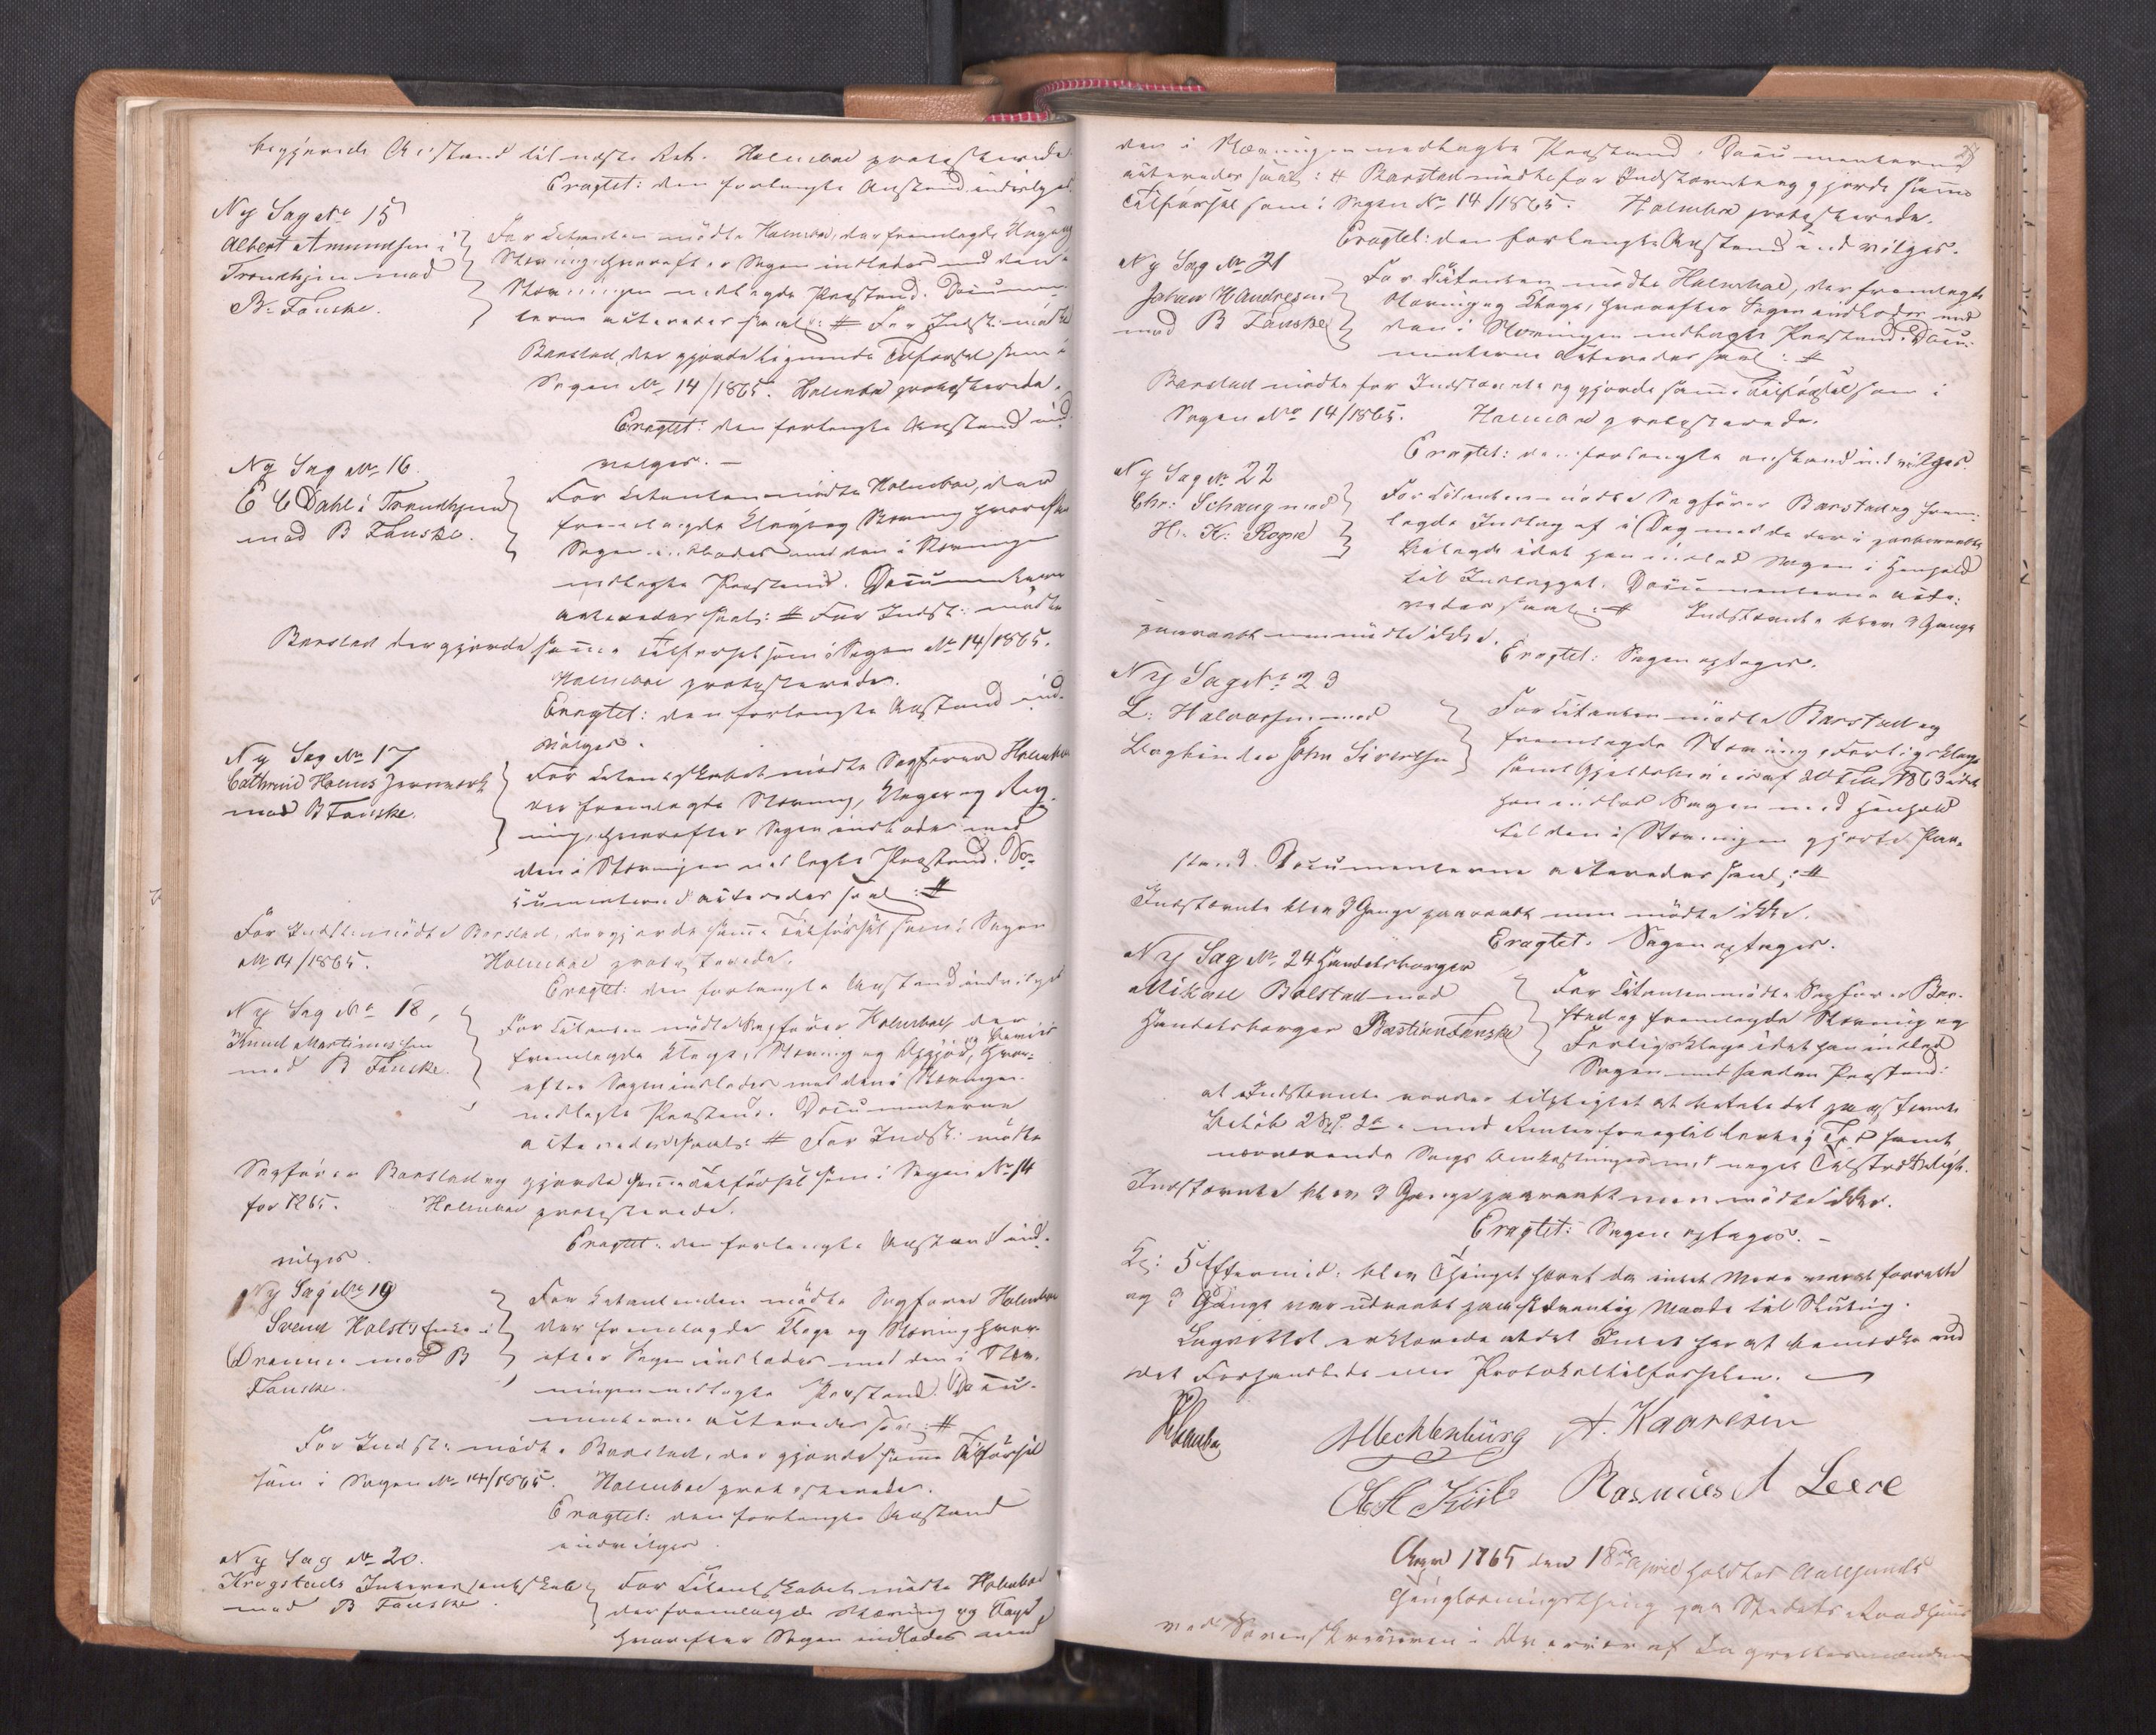 begjærede Anstand til næste Ret. Holmboe protesterede.
Eragtet: den forlangte Anstand indvilges.
Ny Sag No 15
Albert Amundsen i
Trondhjem mod
B. Fauske.
For Citanten mødte Holmboe, der fremlagde Klage og
Stævning, hvorefter Sagen indlodes med den i
Stævningen nedlagte Paastand. Documen-
terne acteredes saal: # For Indst: mødte
Barstad, der gjorde lignende Tilførsel som i
Sagen No 14/1865. Holmboe protesterede.
Eragtet: den forlangte Anstand ind-
vilges. —
Ny Sag No 16
E C Dahl i Trondhjem
mod B Fauske.
For Citanten mødte Holmboe, der
fremlagde Klage og Stævning hvorefter
Sagen indlodes med den i Stævningen
nedlagte Paastand. Documenterne
acteredes saal: # For Indst: mødte
Barstad der gjorde samme Tilførsel som i Sagen No 14/1865.
Holmboe protesterede.
Eragtet: den forlangte Anstand ind-
vilges.
Ny Sag No 17
Cathrine Holms Jernværk
mod B Fauske.
For Citantskabet mødte Sagfører Holmboe
der fremlagde Stævning, Klage og Reg-
ning, hvorefter Sagen indlodes med
den i Stævningen nedlagte Paastand. Do-
cumenterne acteredes saal: #
For Indst: mødte Barstad, der gjorde samme Tilførsel som i Sagen
No 14/1865. Holmboe protesterede.
Eragtet: den forlangte Anstand indvilges
Ny Sag No 18,
Knud Martinussen
mod B Fauske.
For Citanten mødte Sagfører Holmboe, der
fremlagde Klage, Stævning og hvor-
efter Sagen indlodes med den i Stævningen
nedlagte Paastand. Documenterne
acteredes saal: # For Indst: mødte
Sagfører Barstad og gjorde samme Tilførsel som i Sagen No 14
for 1865. Holmboe protesterede.
Eragtet: den forlangte Anstand ind-
vilges.
Ny Sag No 19
Svend Holsts Enke i
mod B
Fauske.
For Citantinden mødte Sagfører Holmboe
der fremlagde Klage og Stævning hvor-
efter Sagen indlodes med den i Stæv-
ningen nedlagte Paastand. Docu-
menterne acteredes saal: #
For Indst: mødte Barstad, der gjorde samme Tilførsel
som i Sagen No 14/1865. Holmboe protesterede.
Eragtet: den forlangte Anstand
indvilges.
Ny Sag No 20.
Krogstads Interessentskab
mod B Fauske.
For Citantskabet mødte Holmboe
der fremlagde Stævning og Klage,
hvorefter Sagen indlodes med
den i Stævningen nedlagte Paastand. Documenterne
acteredes saal: # Barstad mødte for Indstævnte og gjorde samme
Tilførsel som i Sagen No 14/1865. Holmboe protesterede.
Eragtet: den forlangte Anstand indvilges.
Ny Sag No 21
Johan H Andresen
mod B Fauske
For Citanten mødte Holmboe, der fremlagde
Stævning og Klage, hvorefter Sagen indlodes med
den i Stævningen nedlagte Paastand. Docu-
menterne acteredes saal: #
Barstad mødte for Indstævnte og gjorde samme Tilførsel som i
Sagen No 14/1865. Holmboe protesterede.
Eragtet: den forlangte anstand indvilges.
Ny Sag No 22
Chr: Schaug mod
H. K: Rogne
For Citanten mødte Sagfører Barstad og frem-
lagde Indlæg af i Dag med de deri paaberaabte
Bilagde idet han indlod Sagen i Henhold
til Indlægget. Documenterne acte-
redes saal: # Indstævnte blev 3 Gange
paaraabt men mødte ikke.
Eragtet: Sagen optages.
Ny Sag No 23
L: Halvorsen mod
Bogbinder John Sivertsen
For Citanten mødte Barstad og
fremlagde Stævning, Forligsklage
samt Gjeldsbeviis af 1863 idet
han indlod Sagen med Henhold
til den i Stævningen gjorte Paa-
stand. Documenterne acteredes saal: #
Indstævnte blev 3 Gange paaraabt men mødte ikke.
Eragtet. Sagen optages.
Ny Sag No 24 Handelsborger
Mikael Bolstad mod
Handelsborger Bastian Fauske
For Citanten mødte Sagfører Bar-
stad og fremlagde Stævning og
Forligsklage idet han indlod
Sagen med saadan Paastand:
at Indstævnte vorder tilpligtet at betale det paastævnte
Beløb med Renter fra samt
nærværende Sags Omkostninger
Indstævnte blev 3 Gange paaraabt men mødte ikke.
Eragtet: Sagen optages. —
Kl: 5 Eftermid: blev Thinget hævet da intet Mere var at forrette
og 3 Gange var udraabt paa sædvanlig Maade til Slutning.
Lagrettet erklærede at det Intet har at bemærke ved
det Forhandlede eller Protokoltilførselen. —
AMechlenburg A. Kaaresen
Rasmus A Leere
Aar 1865 den 18de April holdtes Aalesunds
paa Stedets Raadhuus
ved Sorenskriveren i Overvær af Lagrettesmændene